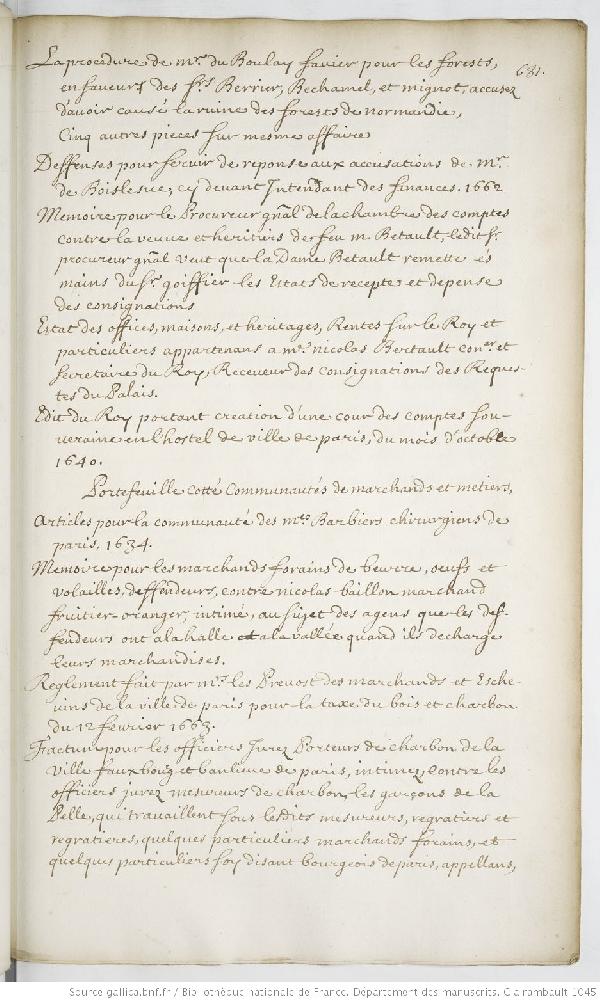 681.
La procedure de mr. du Boulay favier pour les forests,
en faveurs des srs Berrier, Bechamel, et mignot, accusez
d'avoir causé la ruine des forests de normandie,
Cinq autres pieces sur mesme affaire
Deffenses pour servir de reponse aux accusations de mr.
de Boislesue, cy devant Intendant des finances. 1662
Memoire pour le Procureur gnãl de la chambre des comptes
contre la veuve et heritiers de feu m. Betault, ledit sr.
procureur gnãl veut que la Dame Betault remette es
mains du sr. goiffier les Estats de recepte et depense
des consignations
Estat des offices, maisons, et heritages, Rentes sur le Roy et
particuliers appartenans a me. nicolas Bertault coner et
secretaire du Roy, Receveur des consignations des Reques-
tes du Palais.
Edit du Roy portant creation d'une cour des comptes sou-
veraine en l'hostel de ville de paris, du mois d'octobre
1640.
Portefeuille cotté Communautés de marchands et metiers,
Articles pour la communauté des mes. Barbiers chirurgiens de
paris. 1634.
Memoire pour les marchands forains de beurre, oeufs et
volailles, deffendeurs, contre nicolas baillon marchand
fruitier-oranger, intimé, au sujet des agens que les def-
fendeurs ont a la halle et a la vallée quand ils decharge
leurs marchandises.
Reglement fait par mrs. les Prevost des marchands et Esche-
vins de la ville de paris pour la taxe du bois et charbon
du 12 fevrier 1663.
Factum pour les officiers Jurez Porteurs de charbon de la
ville fauxbourg et banlieue de paris, intimez, contre les
officiers jurez mesureurs de charbon, les garçons de la
Pelle, qui travaillent sous lesdits mesureurs, regratiers et
regratieres, quelques particuliers marchands forains, et
quelques particuliers soy disant bourgeois de paris, appellans,
Source gallica.bnf.fr / Bibliothèque nationale de France. Département des manuscrits. Clairambault 1045